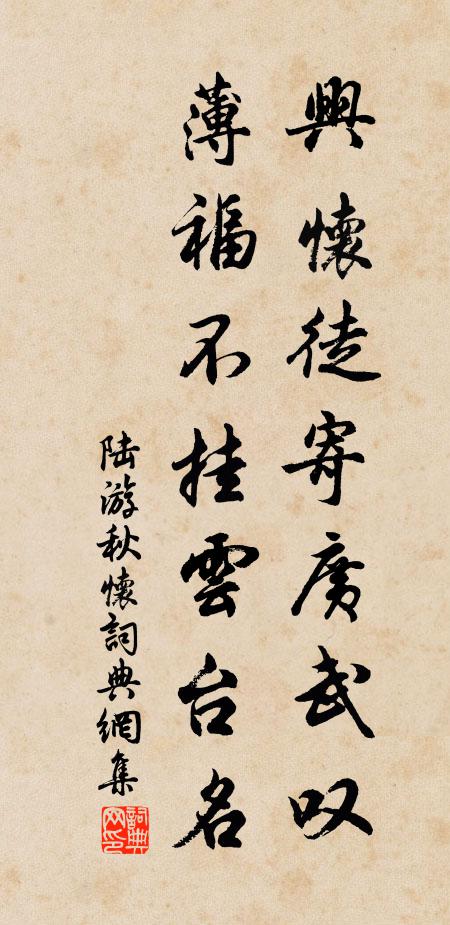 興懷徒寄廣武叹
薄福不挂雲台名
陆游秋懷詞典網集
詞典网印